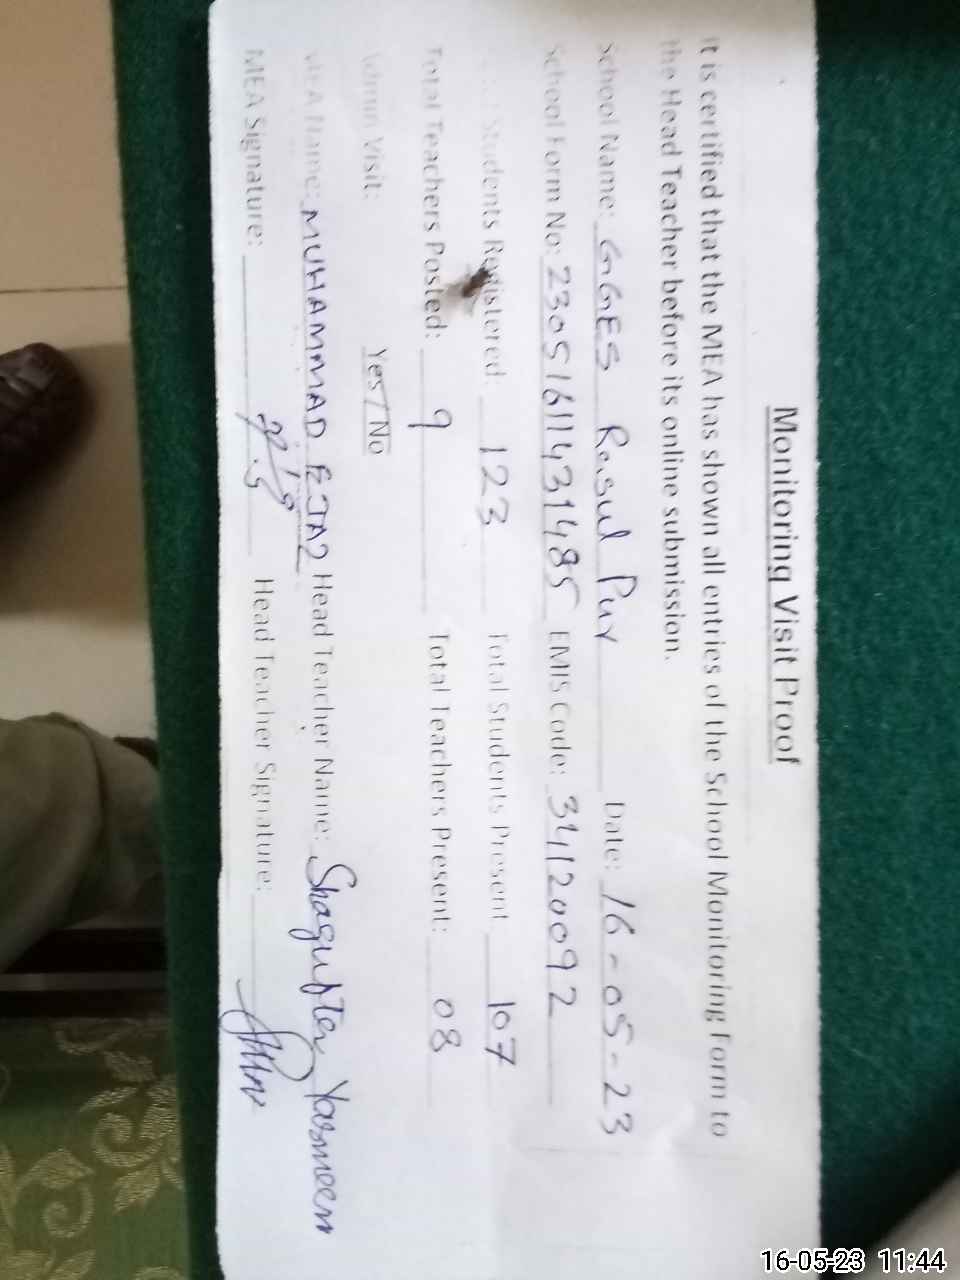 Monitoring Visit Proof
It is certified that the MEA has shown all entries of the School Monitoring Form to
the Head Teacher before its online submission.
School Name: GGES Rasul Pur Date: 16-05-23
School Form No: 23051611431485 EMIS Code: 34120092
Students Registered: 123 Total Students Present 107
Total Teachers Posted: 9 Total Teachers Present: 08
Admin Visit: Yes / No
MEA Name: MUHAMMAD EJAZ Head Teacher Name: Shagufta Yasmeen
MEA Signature: Head Teacher Signature:
16-05-23 11:44